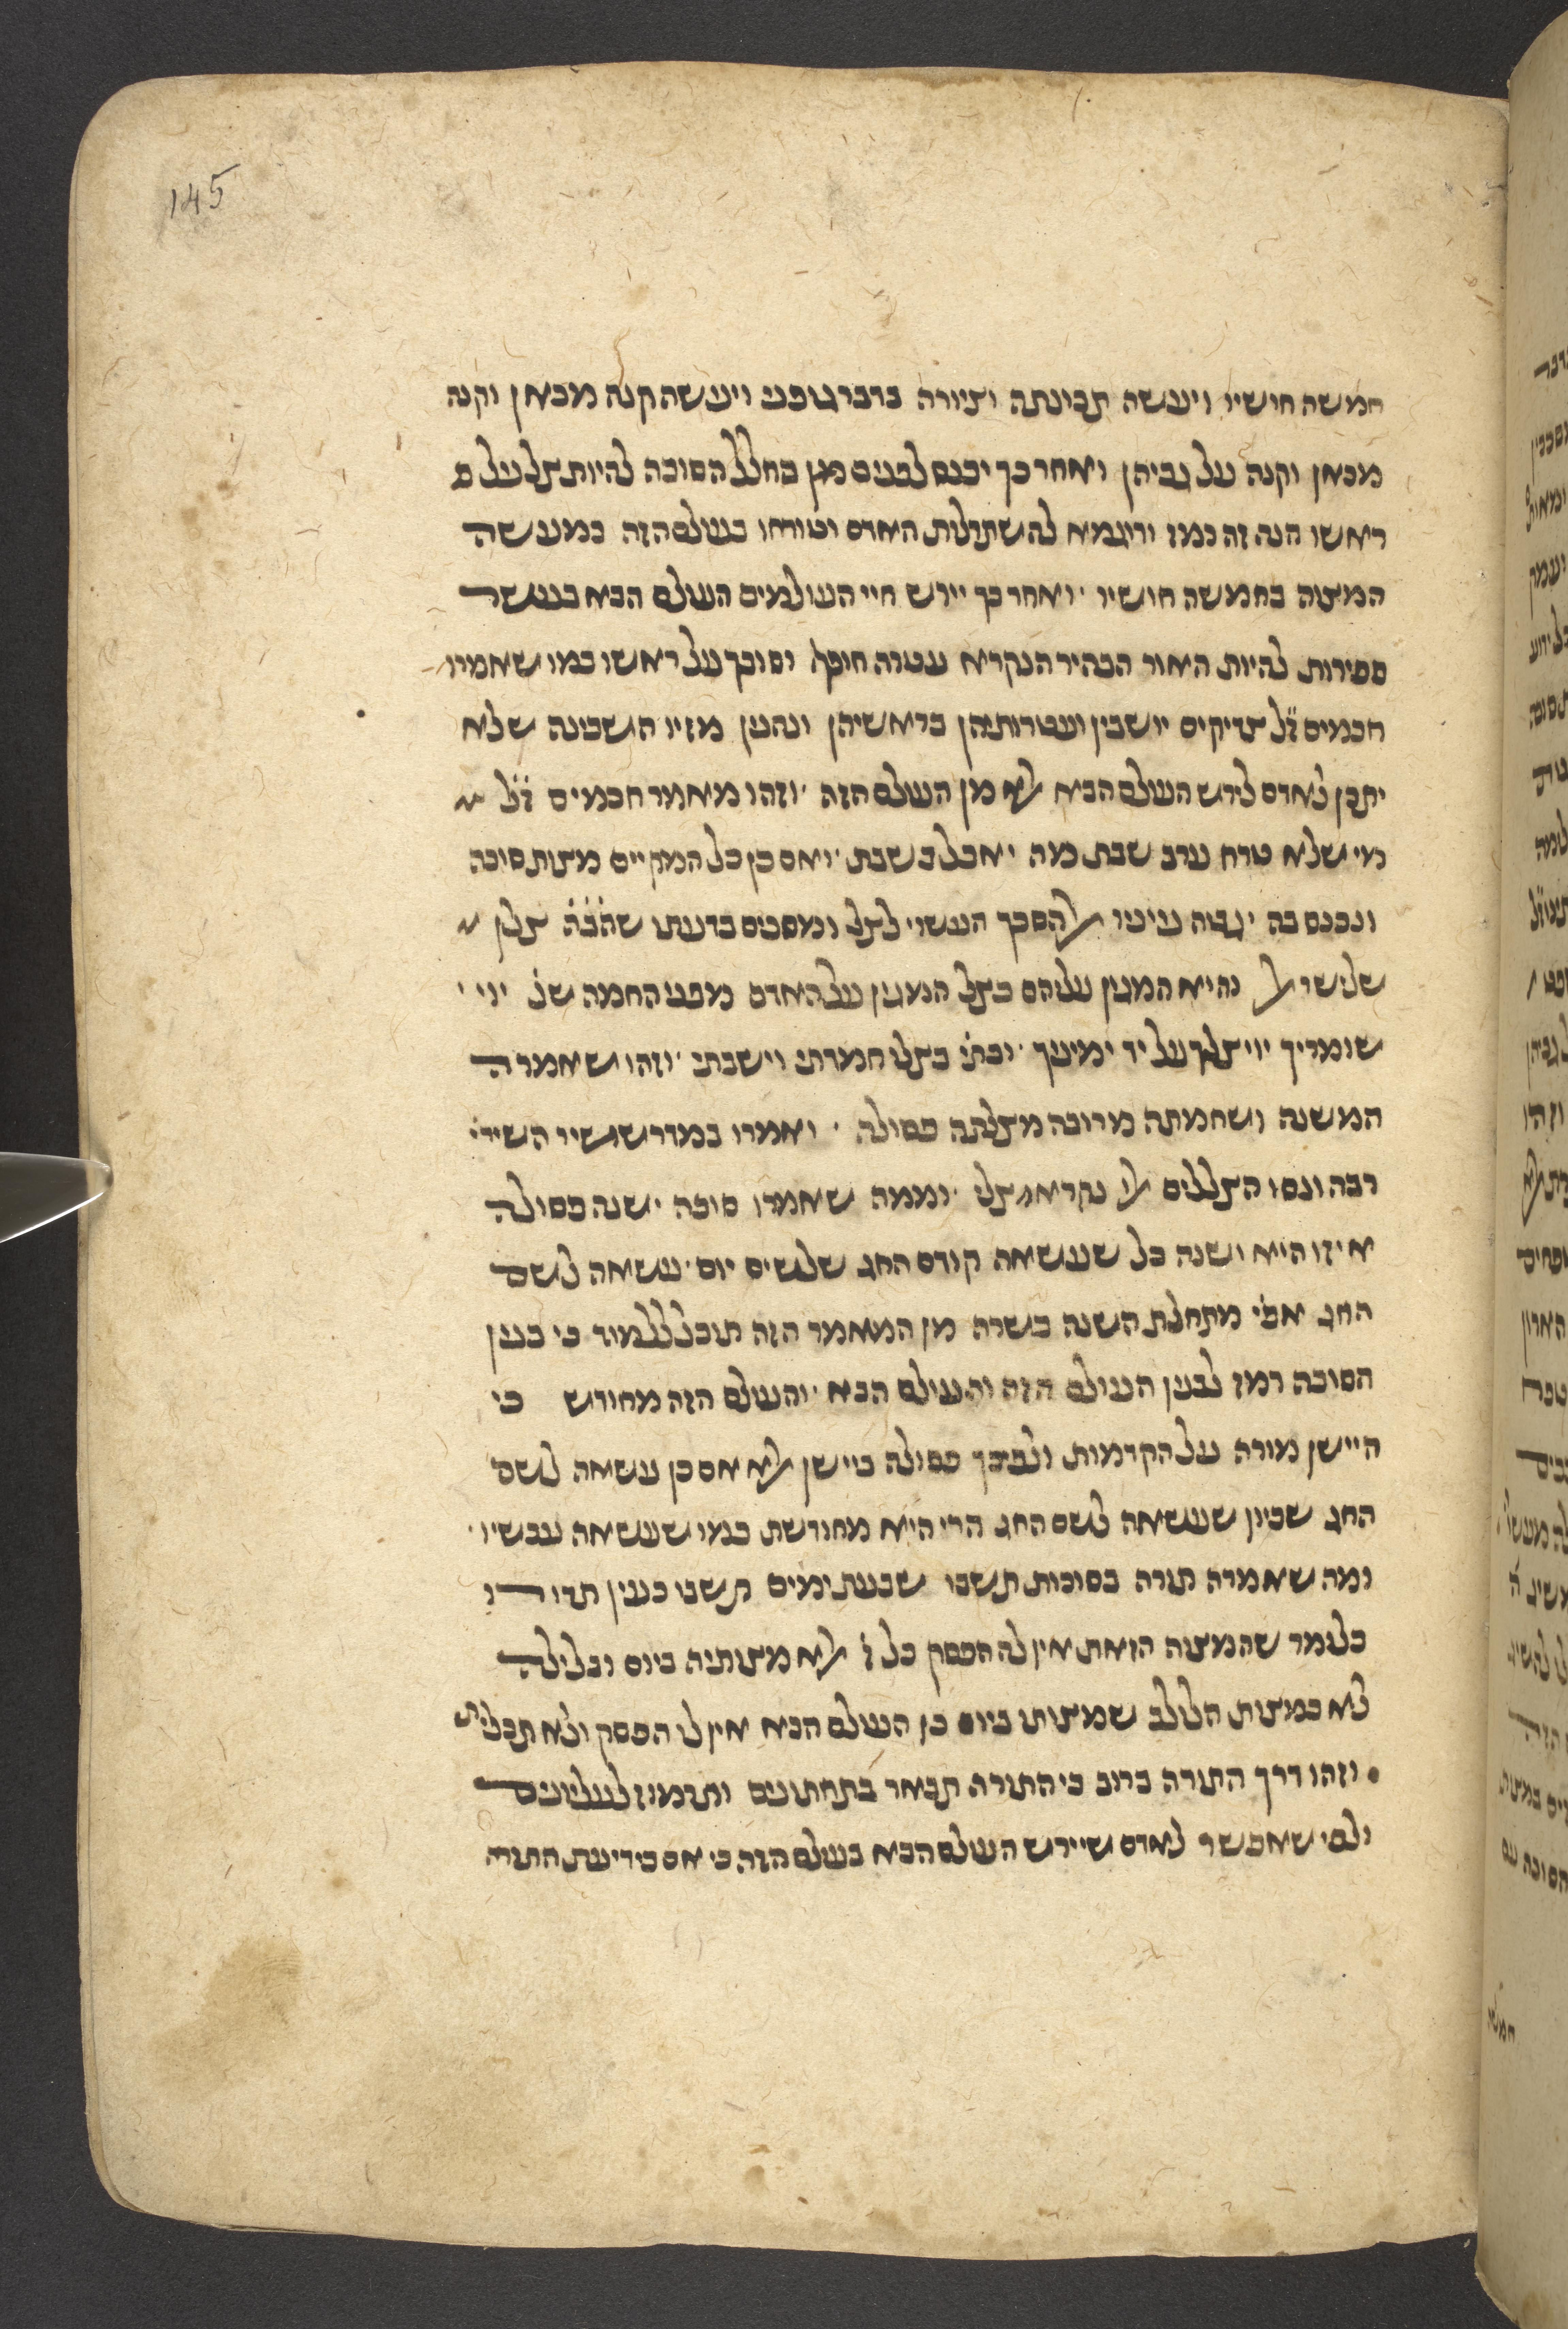 145
חמשה חושיו ויעשה תכונתה וציורה בדבר גופני ויעשה קנה מכאן וקנה
מכאן וקנה על גביהן ואחר כך יכנס לפנים מן בחלל הסוכה להיות צל על
ראשו הנה זה רמז ודוגמא להשתדלות האדם וטורחו בעולם הזה במעשה
המצוה בחמשה חושיו ואחר כך יירש חיי העולמים העולם הבא בעשר
ספירות להיות האור הבהיר הנקרא עטרה חופף וסוכך על ראשו כמו שאמרו
חכמים ז״ל צדיקים יושבין ועטרותיהן בראשיהן ונהנין מזיו השכינה שלא
יתכן לאדם לירש העולם הבא אלא מן העולם הזה וזהו מאמר חכמים ז״ל
מי שלא טרח ערב שבת מה יאכל בשבת ואם כן כל המקיים מצות סוכה
ונכנס בה יגביה עיניו אל הסכך העשוי לצל ומסכים בדעתו שהב״ה צלן
של ישראל והיא המגין עליהם כצל המגין על האדם מפני החמה שנ׳ יוי
שומריך יוי צלך על יד ימינך וכת׳ בצלו חמדתי וישבתי וזהו שאמרה
המשנה ושחמתה מרובה מצלתה פסולה ואמרו במדרש שיר השירי׳
רבה ונסו הצללים אל נקרא צלי וממה שאמרו סוכה ישנה פסולה
איזו היא ישנה כל שעשאה קודם החג שלשים יום עשאה לשם
החג אפי׳ מתחלת השנה כשרה מן המאמר הזה תוכל ללמוד כי בענין
הסוכה רמז לענין העולם הזה והעולם הבא והעולם הזה מחודש כי
היישן מורה על הקדמות ולפיכך פסולה ביישן אלא אם כן עשאה לשם
החג שכיון שעשאה לשם החג הרי היא מחודשת כמו שעשאה עכשיו
ומה שאמרה תורה בסוכות תשבו שבעת ימים תשבו כעין תדורו
כלומר שהמצוה הזאת אין לה הפסק כל ז׳ אלא מצותיה ביום ובלילה
לא כמצות הלולב שמצותו ביום כן העולם הבא אין לו הפסק ולא תכלית
וזהו דרך התורה ברוב כי התורה תבאר בתחתונים ותרמוז לעליונים
ולפי שאפשר לאדם שיירש העולם הבא בעולם הזה כי אם בידיעת התורה